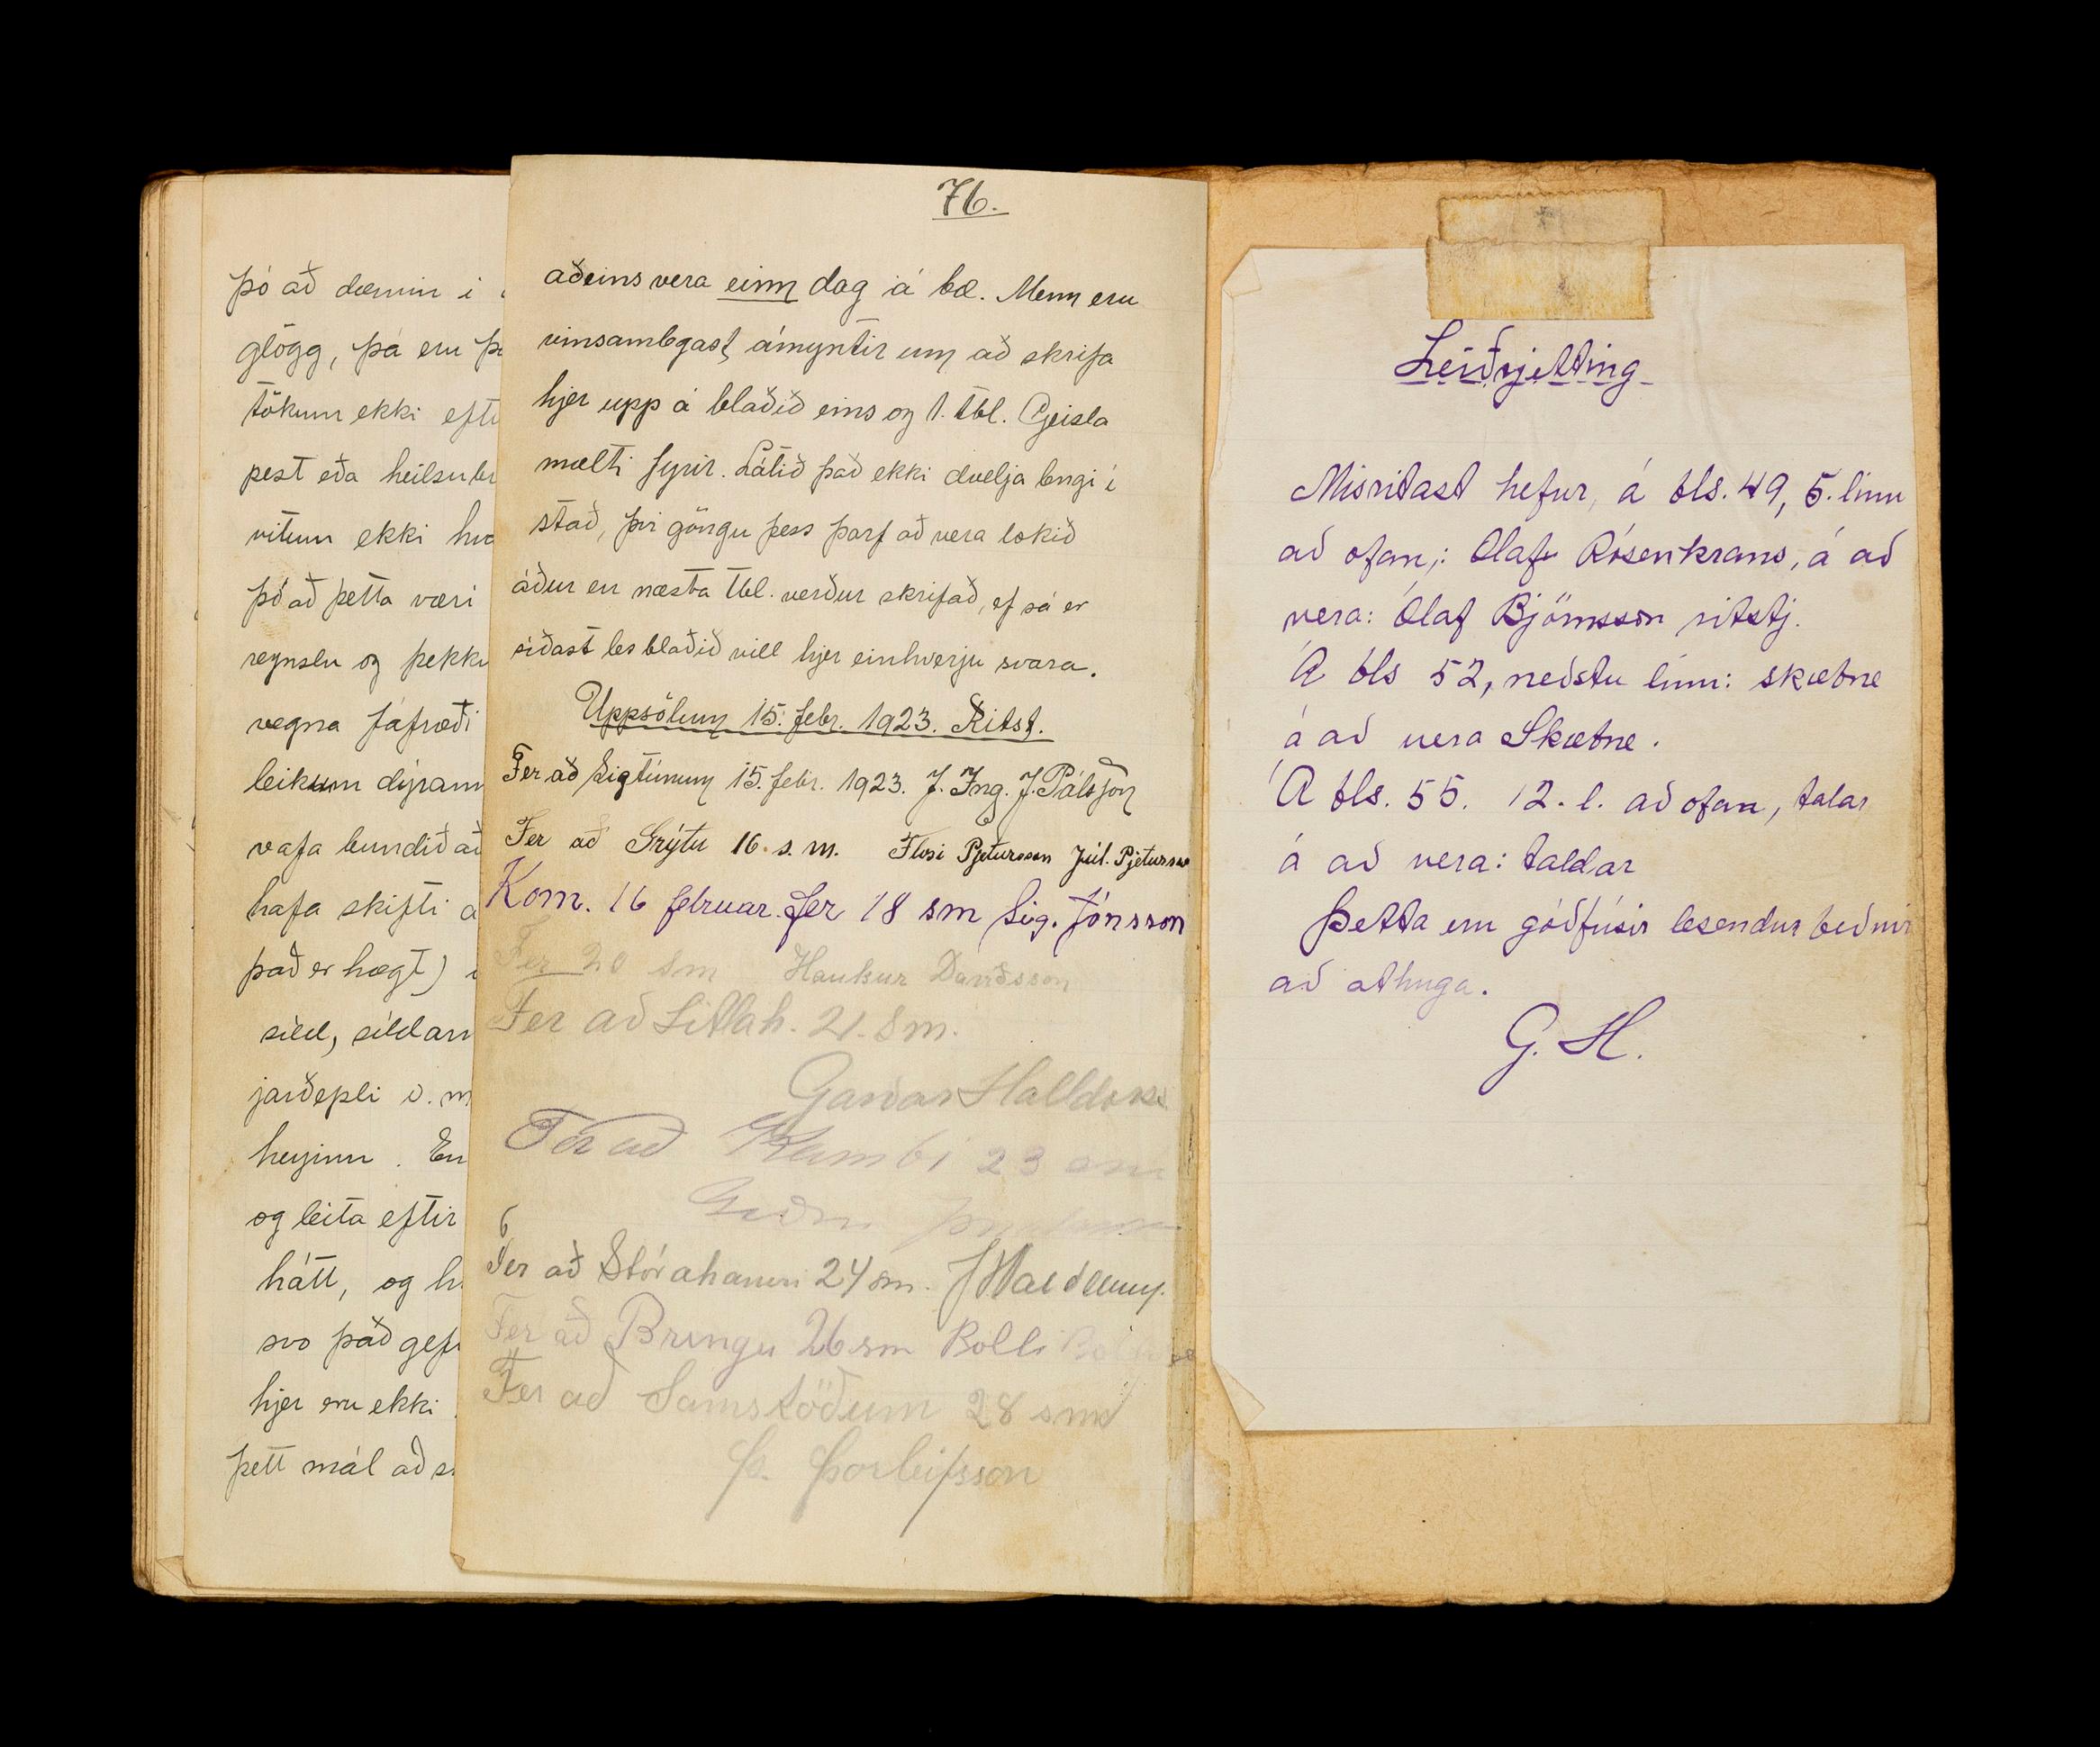 þó að dæmin í
glögg, þá eru þ
tökum ekki eft
pest eða heilsub
vitum ekki hv
þó að þetta væri
reynslu og þekk
vegna fáfræði
leikum dýrann
vafa bundið að
hafa skifti a
það er hægt)
síld, síldar
jarðepli o. m
heyinu. En
og leita eftir
hátt, og h
svo það gef
hjer eru ekki
þett mál að s
76.
aðeins vera einn dag á bæ. Menn eru
vinsamlegast ámyntir um að skrifa
hjer upp á blaðið eins og 1. tbl. Geisla
mælti fyrir. Látið það ekki dvelja lengi í
stað, því göngu þess þarf að vera lokið
áður en næsta tbl. verður skrifað, ef sá er
síðast les blaðið vill hjer einhverju svara.
Uppsölum 15. febr. 1923. Ritst.
Fer að Sigtúnum 15. febr. 1923. J. Ing. J. Pálsson
Fer að Grýtu 16. s. m. Flosi Pjetursson Júl. Pjetursson
Kom. 16 februar. Fer 18 sm Sig. Jónsson
Fer 20 sm Haukur Davíðsson
Fer að Litlah. 21. sm.
Garðar Halldórss
Fer að Kambi 23 sm
Fer að Stórahamri 24 sm.
Fer að Bringu 26 sm Rolli
Fer að Samstöðum 28 sm
Þ. Þorleifsson
Leiðrjetting
Misritast hefur, á bls. 49, 5. línu
að ofan;: Ólafi Rósenkrans, á að
vera: Ólaf Björnsson ritstj.
Á bls 52, neðstu línu: skæbne
á að vera Skæbne.
Á bls. 55. 12. l. að ofan, talar
á að vera: taldar
Þetta eru góðfúsir lesendur beðnir
að athuga.
G. H.